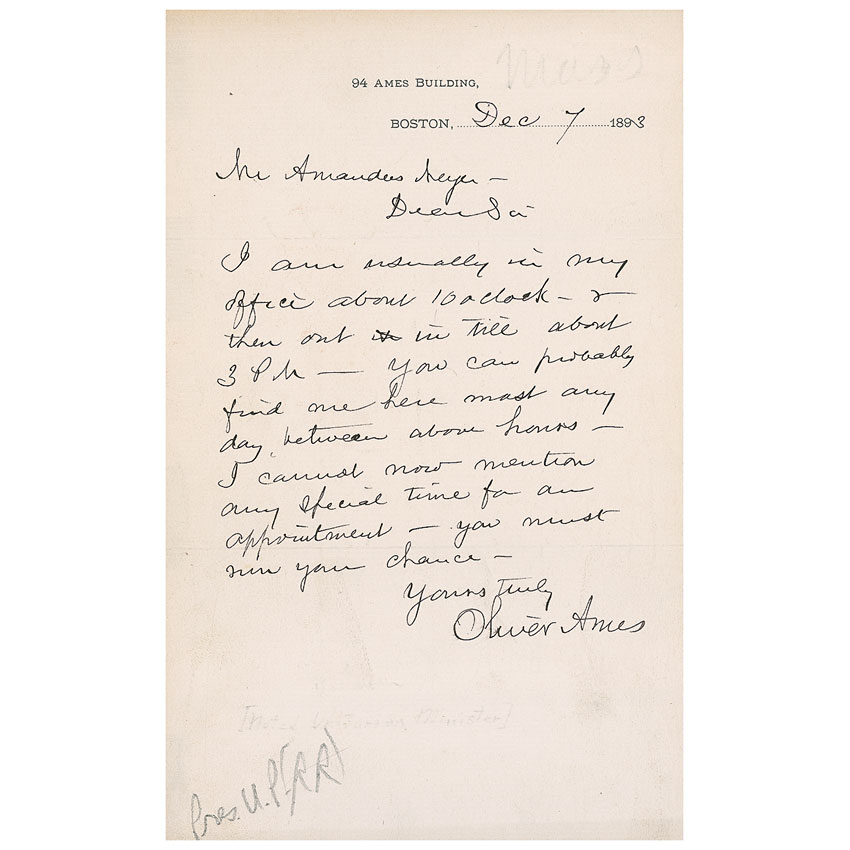 Mass
94 AMES BUILDING,
BOSTON, Dec 7 1893
Mr Amandus Meyer –
Dear Sir
I am usually in my
office about 10 oclock – &
then out in till about
3 PM — You can probably
find me here most any
day between above hours –
I cannot now mention
any special time for an
appointment – you must
run your chance –
Yours truly
Oliver Ames
[Noted Unitarian Minister]
Pres. U.P. (RR)